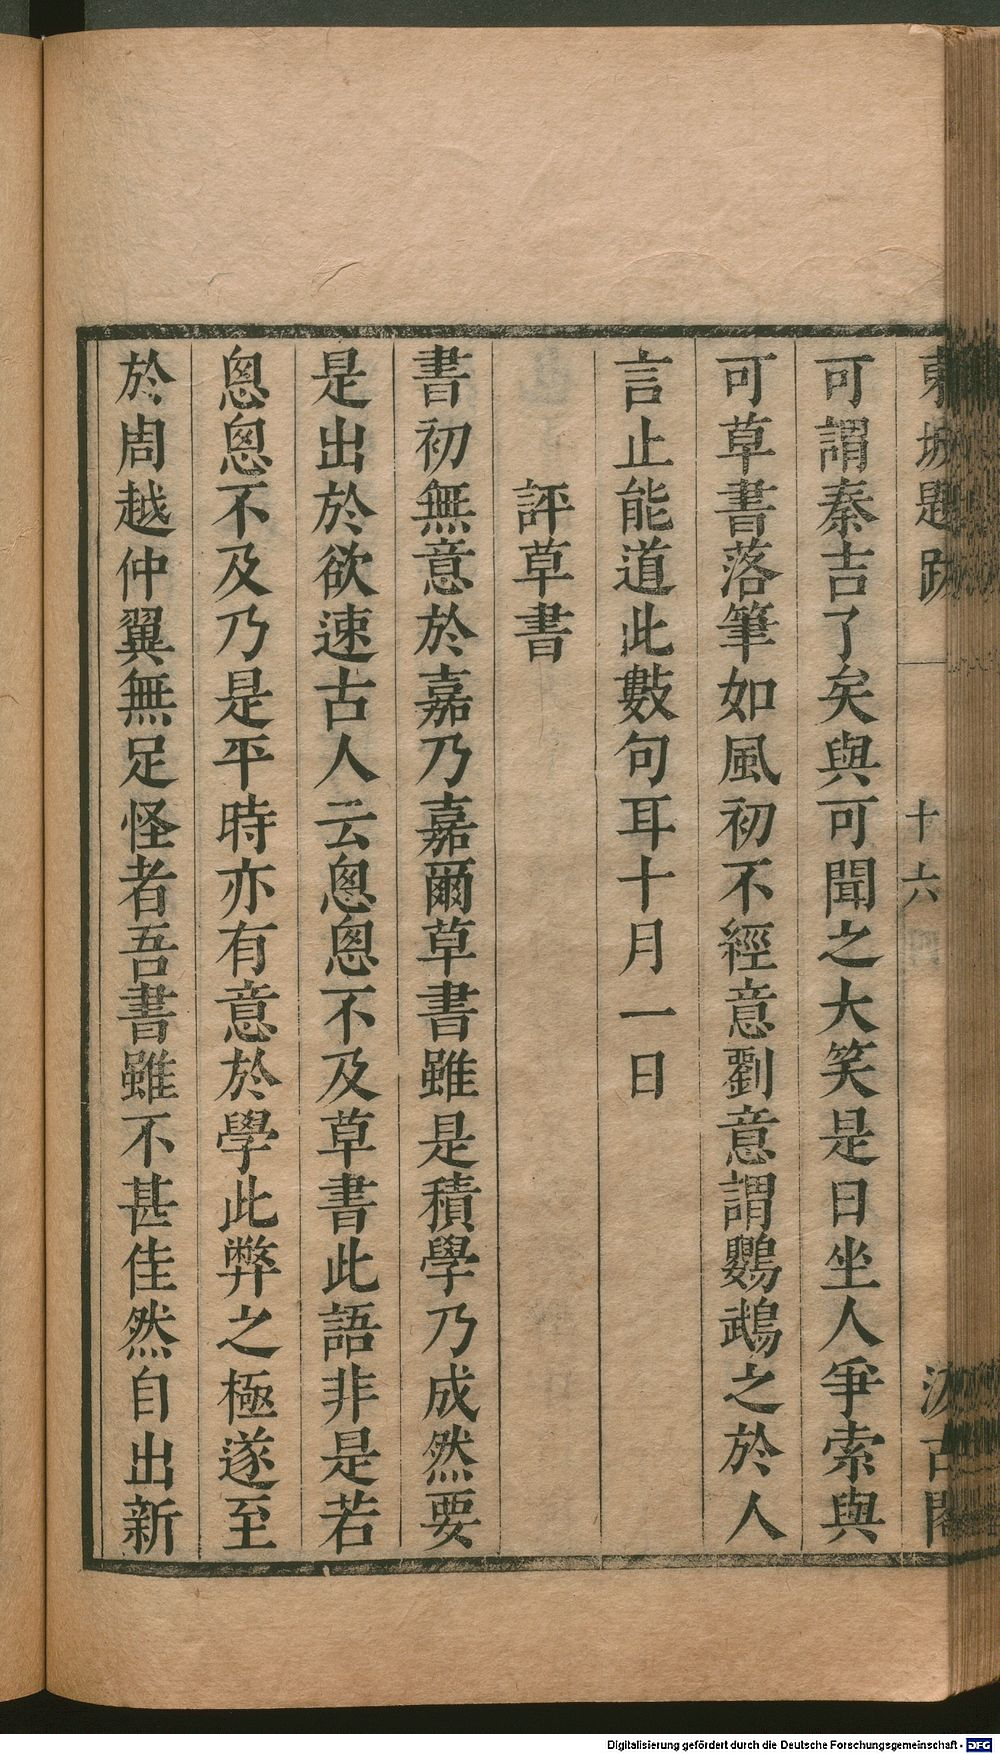 東坡題跋 十六 汲古閣
可謂秦吉了矣與可聞之大笑是日坐人爭索與
可草書落筆如風初不經意劉意謂鸚鵡之於人
言止能道此數句耳十月一日
評草書
書初無意於嘉乃嘉爾草書雖是積學乃成然要
是出於欲速古人云怱怱不及草書此語非是若
怱怱不及乃是平時亦有意於學此弊之極遂至
於周越仲翼無足怪者吾書雖不甚佳然自出新
Digitalisierung gefördert durch die Deutsche Forschungsgemeinschaft - DFG